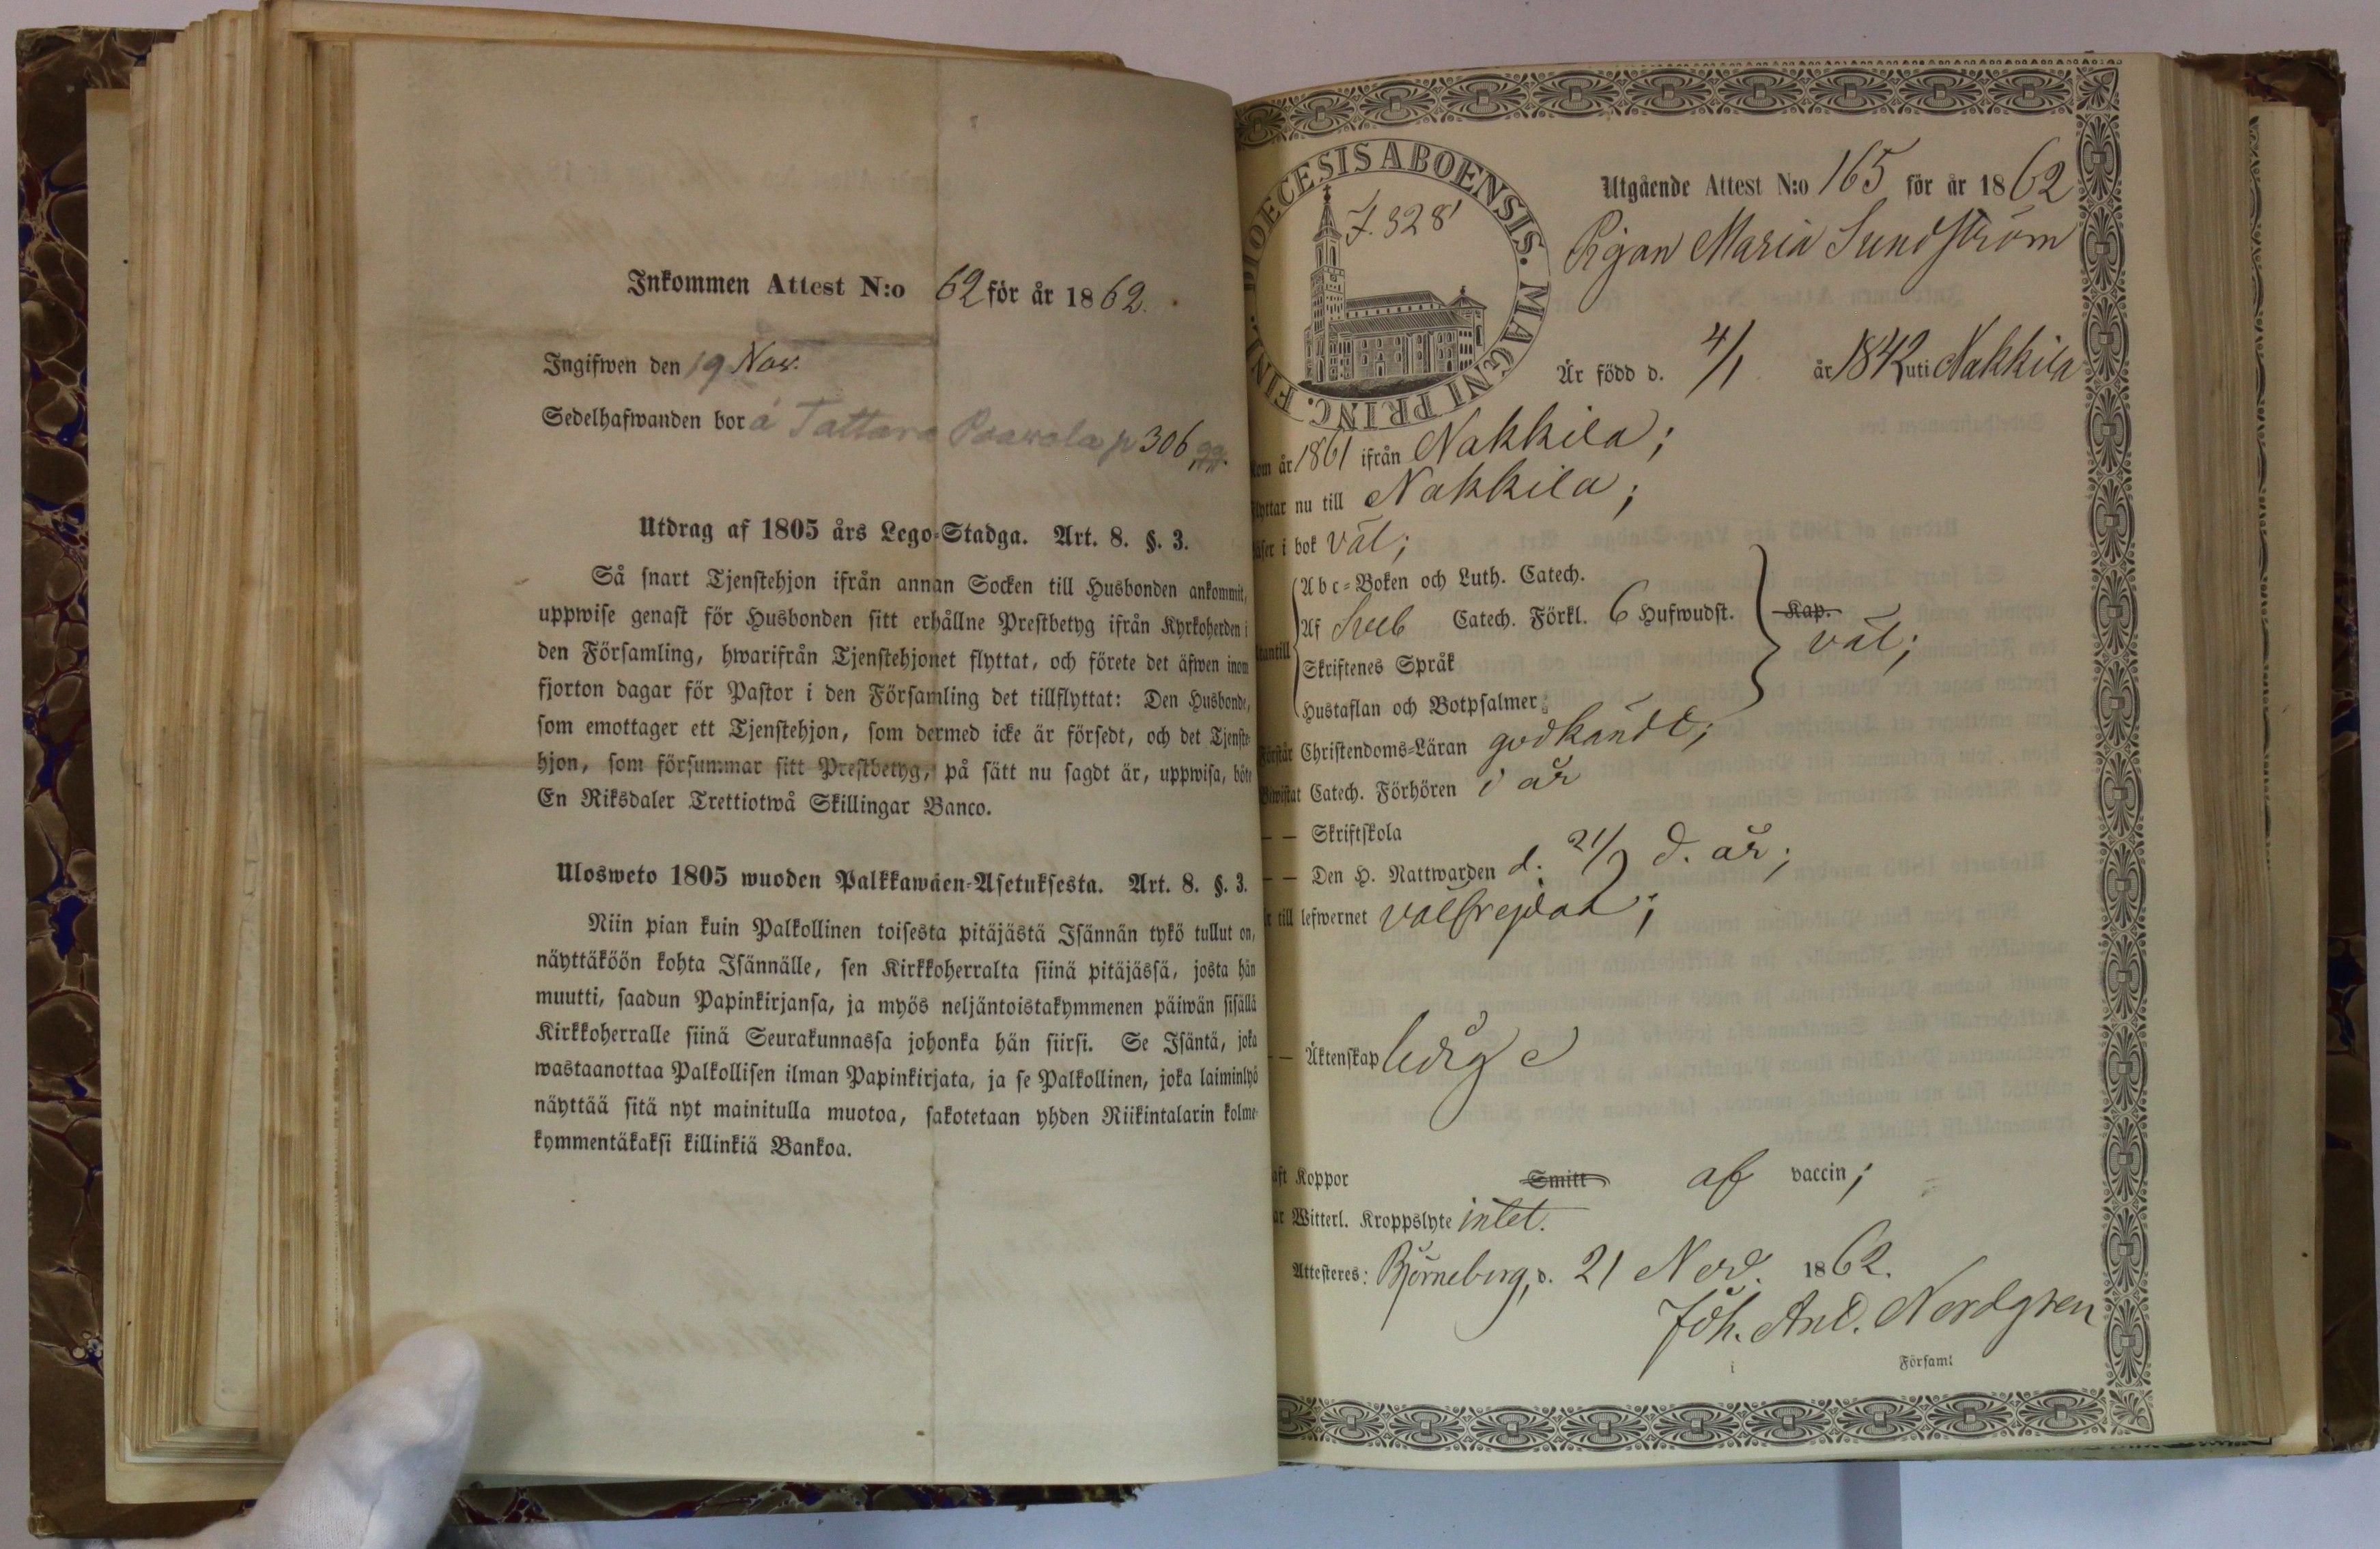 Inkommen Attest N:o 62 för år 1862.
Ingifwen den 19 Nov.
Sedelhafwanden bor å Tattara Paawola p 306
Utdrag af 1805 års Lego-Stadga. Art. 8. §. 3.
Så snart Tjenstehjon ifrån annan Socken till Husbonden ankommit,
uppwise genast för Husbonden sitt erhållne Prestbetyg ifrån Kyrkoherden i
den Församling, hwarifrån Tjenstehjonet flyttat, och förete det äfwen inom
fjorton dagar för Pastor i den Församling det tillflyttat: Den Husbonde,
som emottager ett Tjenstehjon, som dermed icke är försedt, och det Tjenste-
hjon, som försummar sitt Prestbetyg, på sätt nu sagdt är, uppwisa, böte
En Riksdaler Trettiotwå Skillingar Banco.
Ulosweto 1805 wuoden Palkkawäen-Asetuksesta. Art. 8. §. 3.
Niin pian kuin Palkollinen toisesta pitäjästä Isännän tykö tullut on,
näyttäköön kohta Isännälle, sen Kirkkoherralta siinä pitäjässä, josta hän
muutti, saadun Papinkirjansa, ja myös neljäntoistakymmenen päiwän sisällä
Kirkkoherralle siinä Seurakunnassa johonka hän siirsi. Se Isäntä, joka
wastaanottaa Palkollisen ilman Papinkirjata, ja se Palkollinen, joka laiminlyö
näyttää sitä nyt mainitulla muotoa, sakotetaan yhden Riikintalarin kolme-
kymmentäkaksi killinkiä Bankoa.
DIOECESIS ABOENSIS. MAGNI PRINC. FINL.
F. 328
Utgående Attest N:o 165 för år 1862
Pigan Maria Sundström
Är född d. 4/1 år 1842 uti Nakkila
kom år 1861 ifrån Nakkila;
flyttar nu till Nakkila;
läser i bok väl;
Abc-Boken och Luth. Catech.
Af Sveb Catech. Förkl. 6 Hufwudst. Kap.
utantill
väl;
Skriftenes Språk
Hustaflan och Botpsalmer
Förstår Christendoms-Läran godkändt;
Bewistat Catech. Förhören i år
— — Skriftskola
— — Den H. Nattwarden d. 21/9 d. år;
Är till lefwernet välfrejdad;
— — Äktenskap ledig
haft Koppor Smitt af vaccin;
Har Witterl. Kroppslyte intet.
Attesteres: Björneborg, d. 21 Nov. 1862.
Joh. And. Nordgren
i Församl